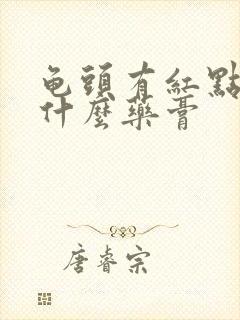 龟頭有紅點
什麼藥膏
唐睿宗